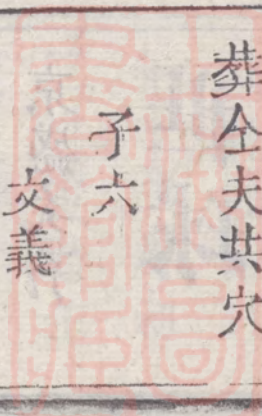 葬仝夫共穴
子六
文義